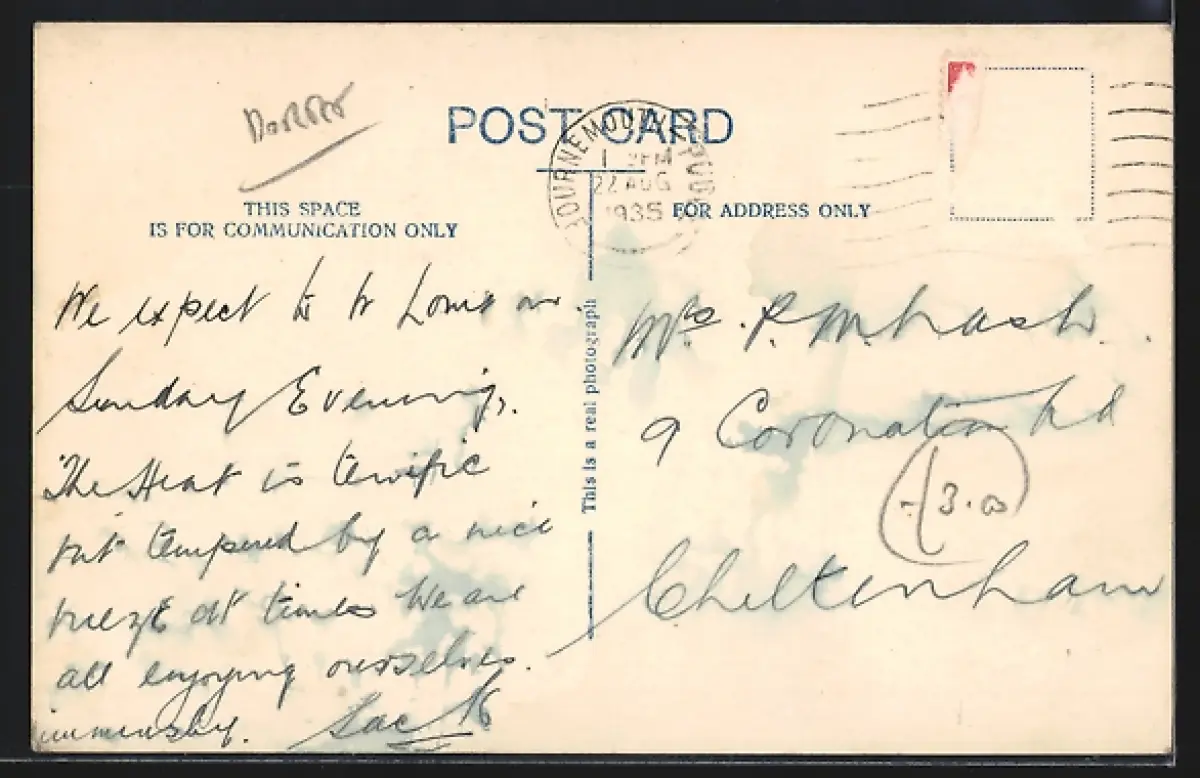 POST CARD
BOURNEMOUTH POOLE
22 AUG
1935
THIS SPACE
IS FOR COMMUNICATION ONLY
FOR ADDRESS ONLY
This is a real photograph
We expect to be home on
Sunday Evening,.
The Heat is terrific
but tempered by a nice
breeze at times We are
all enjoying ourselves.
immensely. Jack
Mrs. P. M.
9 Coronation Rd
3.00
Cheltenham